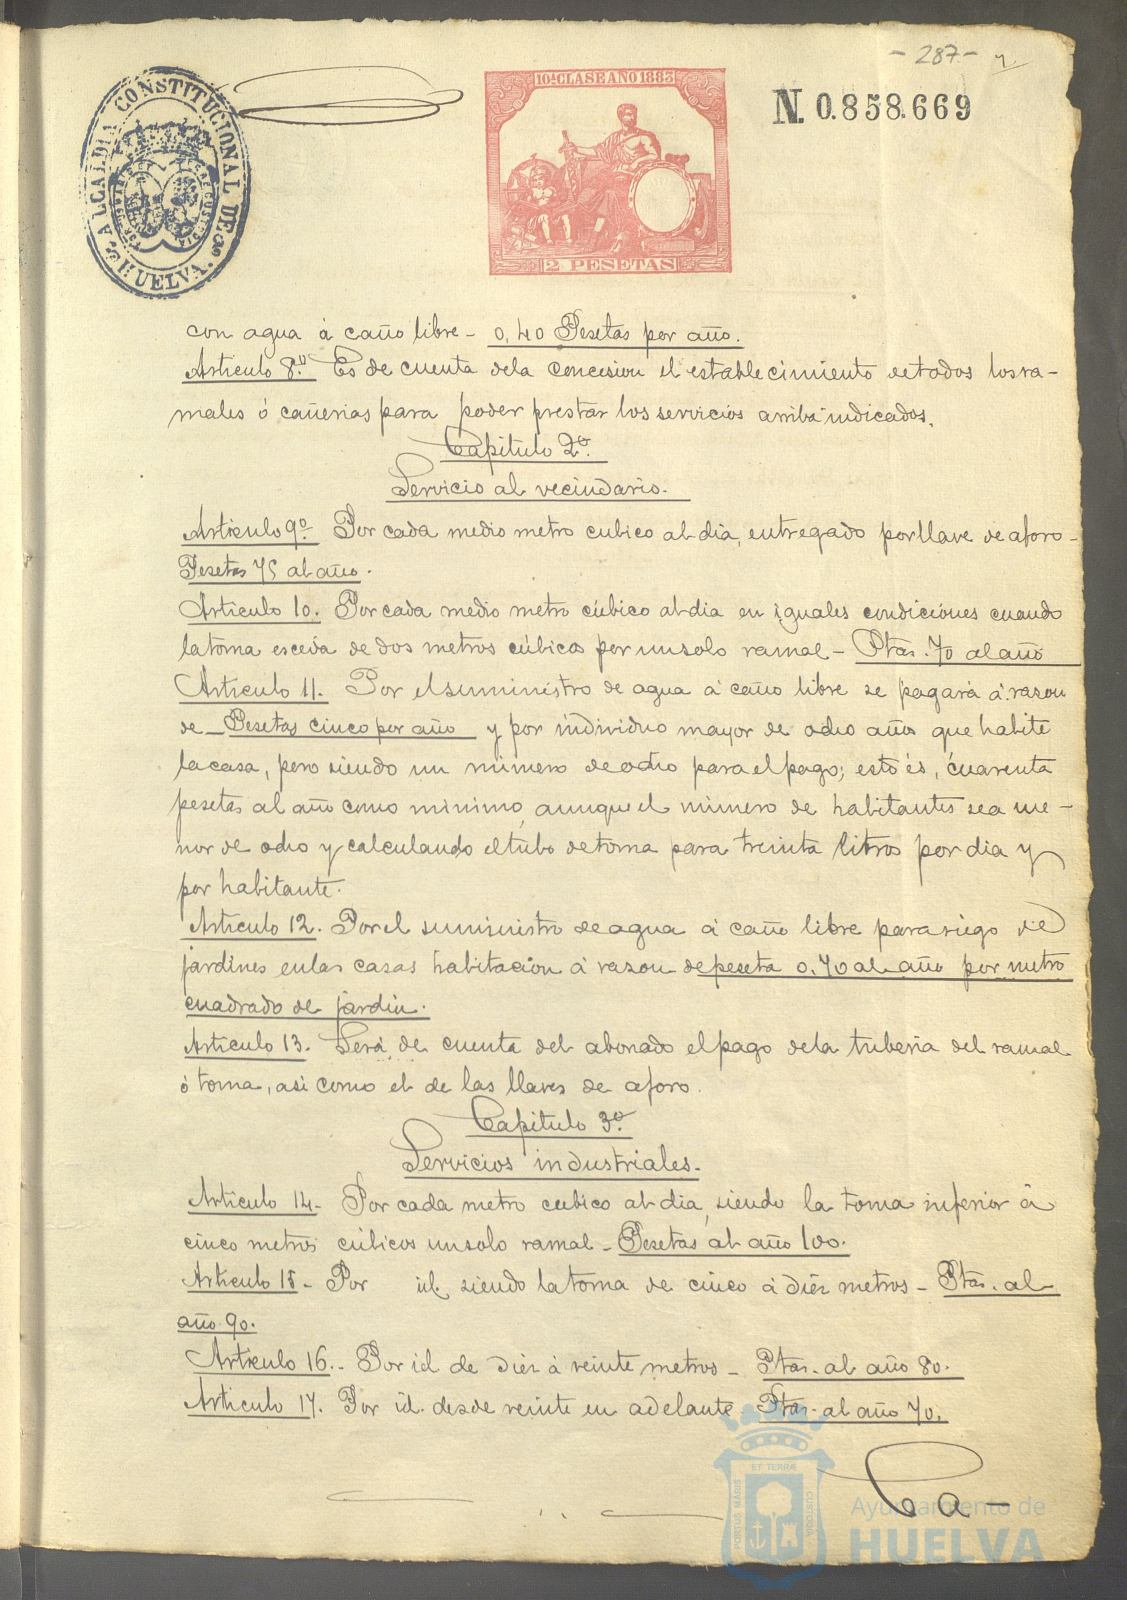 - 287 -
ALCALDIA CONSTITUCIONAL DE HUELVA.
10ª CLASE AÑO 1883
N. 0.858.669
2 PESETAS
con agua á caño libre - 0,40 Pesetas por año.
Articulo 8.º Es de cuenta dela concesion el establecimiento detodos losra-
males ó cañerias para poder prestar los servicios arriba indicados.
Capitulo 2º.
Servicio al vecindario.
Articulo 9º Por cada medio metro cubico al dia, entregado porllave de aforo -
Pesetas 75 al año.
Articulo 10. Por cada medio metro cúbico al dia en iguales condiciones cuando
latoma esceda de dos metros cúbicos por unsolo ramal - Ptas. 70 al año
Articulo 11. Por elsuministro de agua á caño libre se pagará á razon
de - Pesetas cinco por año y por individuo mayor de ocho años que habite
lacasa, pero siendo un minimo deocho para el pago; esto és, cuarenta
pesetas al año como minimo, aunque el número de habitantes sea me-
nor de ocho y calculando eltubo detoma para treinta litros por dia y
por habitante.
Articulo 12. Por el suministro deagua á caño libre parariego de
jardines enlas casas habitacion á razon depeseta 0,70 al año por metro
cuadrado de jardin.
Articulo 13. Será de cuenta del abonado el pago dela tuberia del ramal
ó toma, asi como el de las llaves de aforo.
Capitulo 3º.
Servicios industriales.
Articulo 14 - Por cada metro cubico al dia, siendo la toma inferior á
cinco metros cúbicos unsolo ramal - Pesetas al año 100.
Articulo 15 - Por id. siendo latoma de cinco á diez metros - Ptas. al
año 90.
Articulo 16. - Por id de diez á veinte metros - Ptas. al año 80.
Articulo 17. Por id. desde veinte en adelante Ptas. al año 70.
Ca-
PORTUS MARIS ET TERRÆ CUSTODIA
Ayuntamiento de
HUELVA